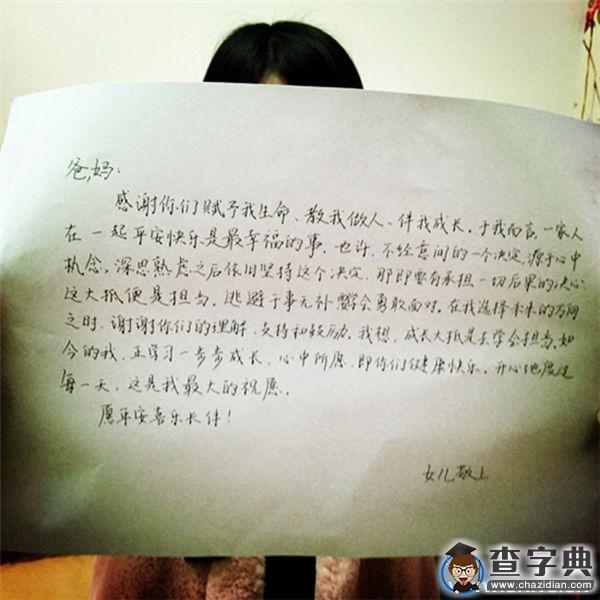 爸,妈:
感谢你们赋予我生命、教我做人、伴我成长。于我而言,一家人
在一起平安快乐是最幸福的事。也许,不经意间的一个决定,源于心中
执念,深思熟虑之后依旧坚持这个决定,那即要有承担一切后果的决心,
这大抵便是担当。逃避于事无补要学会勇敢面对。在我选择未来的方向
之时,谢谢你们的理解、支持和鼓励。我想,成长大抵是去学会担当。如
今的我,正学习一步步成长,心中所愿,即你们健康快乐。开心地度过
每一天,这是我最大的祝愿。
愿平安喜乐长伴!
女儿敬上
查字典
www.chazidian.com